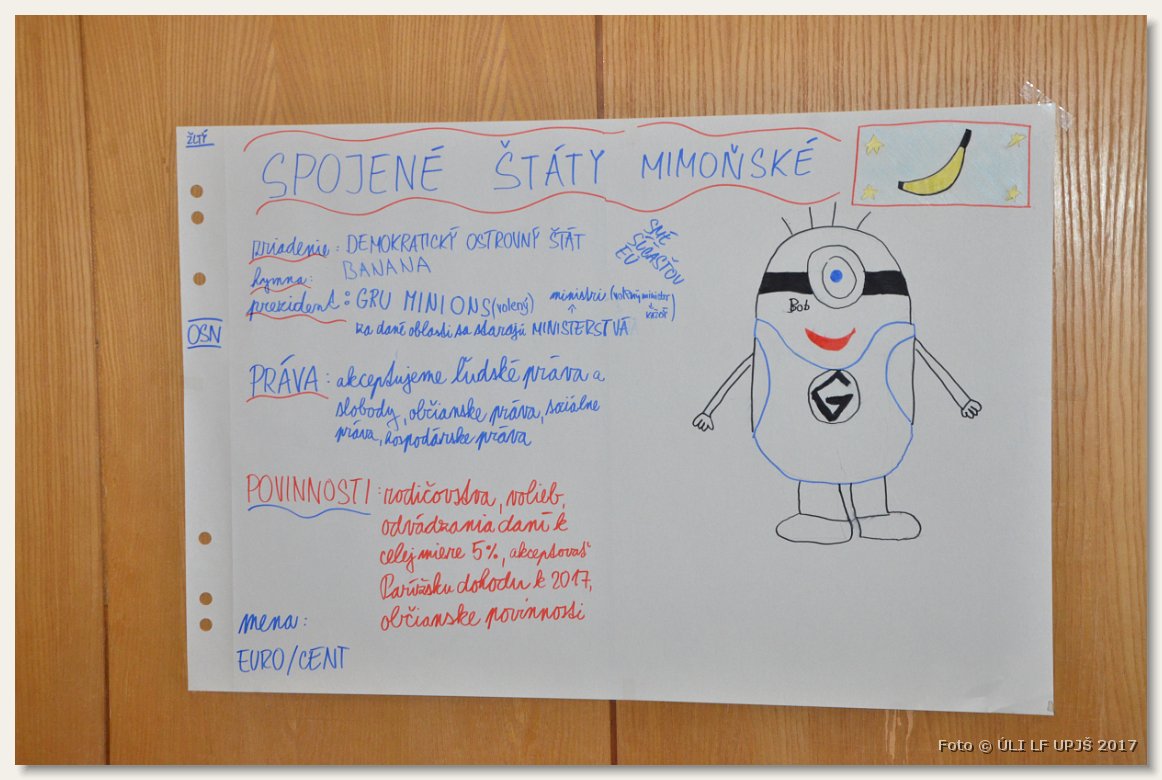 ŽLTÝ
SPOJENÉ ŠTÁTY MIMOŇSKÉ
zriadenie: DEMOKRATICKÝ OSTROVNÝ ŠTÁT
hymna: BANANA
prezident: GRU MINIONS (volený)
ministri (volený minister
za dané oblasti sa starajú MINISTERSTVÁ
SME
SÚČASŤOU
EÚ
OSN
Bob
G
PRÁVA: akceptujeme ľudské práva a
slobody, občianske práva, sociálne
práva, hospodárske práva
POVINNOSTI: rodičovstva, volieb,
odvádzania daní k
celej miere 5%, akceptovať
Parížsku dohodu k 2017,
občianske povinnosti
mena:
EURO/CENT
Foto © ÚLI LF UPJŠ 2017